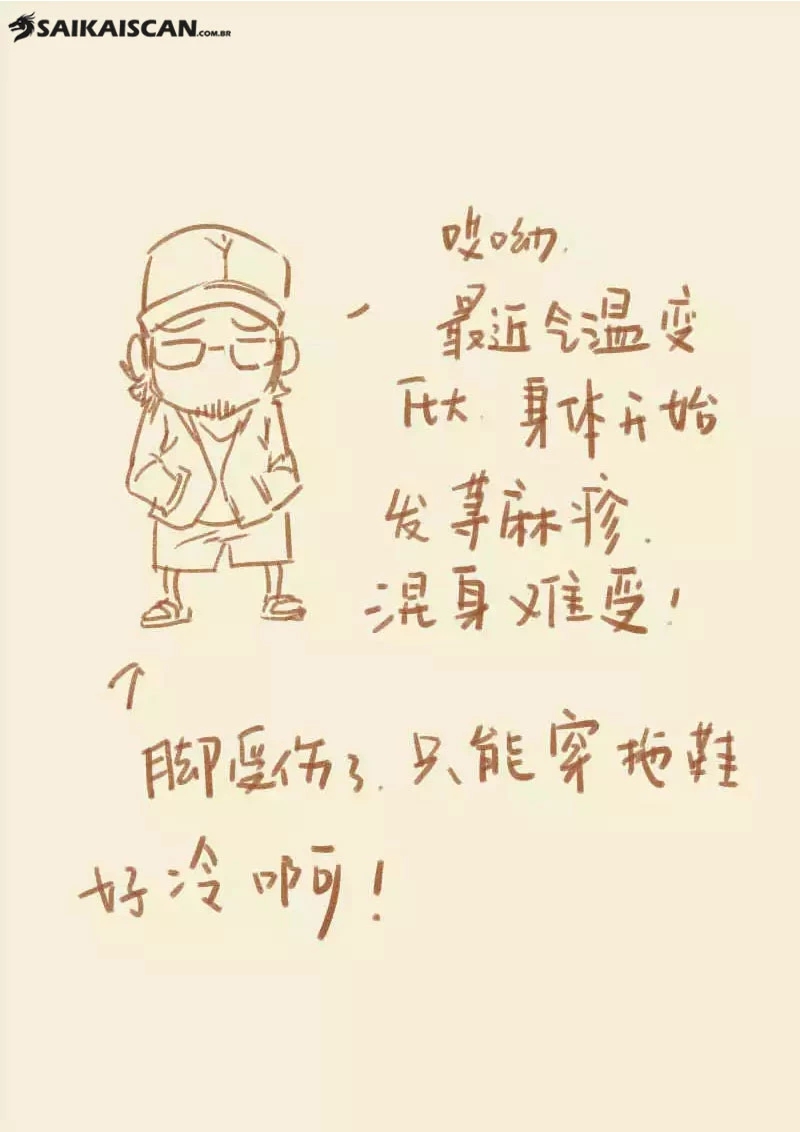 SAIKAISCAN.COM.BR
哎呦.
最近气温变
压大. 身体开始
发荨麻疹.
混身难受!
↑
脚受伤了. 只能穿拖鞋
好冷啊!